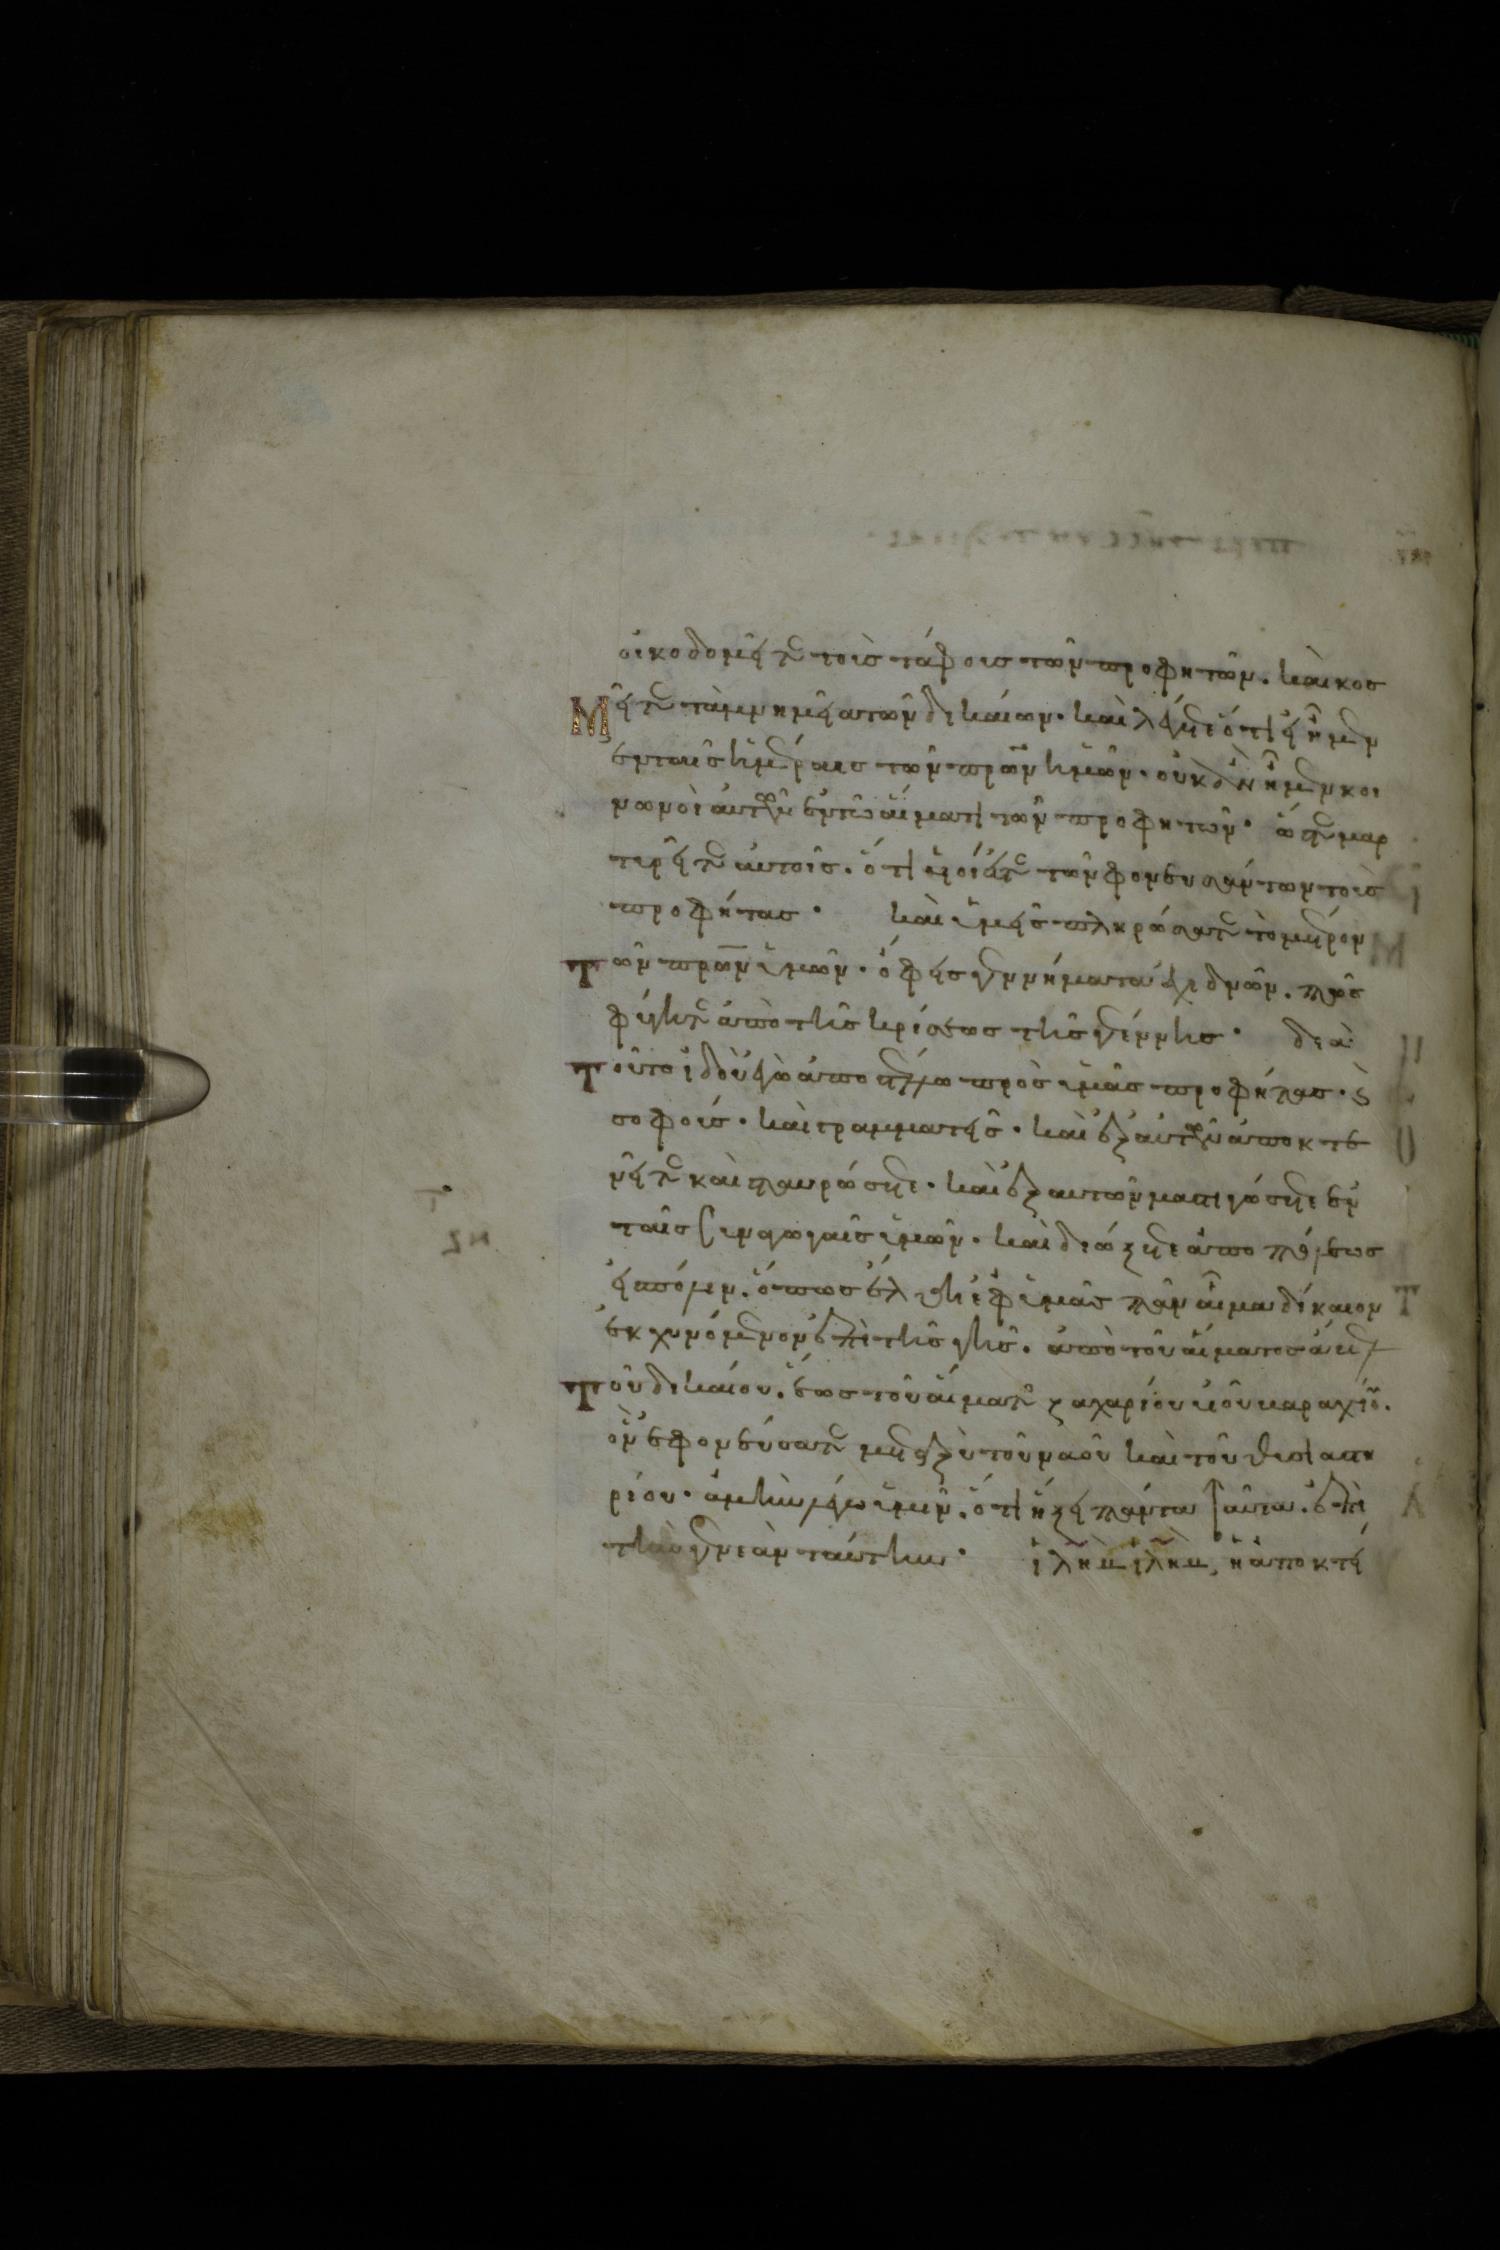 οἰκοδομεῖτε τοῖς τάφοις τῶν προφητῶν. καὶ κοσ
Μεῖτε τὰ μνημεῖα τῶν δικαίων. καὶ λέγετε ὅτι εἰ ἦμεν
ἐν ταῖς ἡμέραις τῶν πρῶν ἡμῶν. οὐκ ἂν ἦμεν κοι
νωνοὶ αὐτῶν ἐν τῶ αἵματι τῶν προφητῶν. ὥστε μαρ
τυρεῖτε αὐτοῖς. ὅτι υἱοί ἐστε τῶν φονευσάντων τοὺς
προφήτας. καὶ ὑμεῖς πληρώσατε τὸ μέτρον
Τῶν πρῶν ὑμῶν. ὄφεις γεννήματα ἐχιδνῶν. πῶς
φύγητε ἀπὸ τῆς κρίσεως τῆς γεέννης. δια
Τοῦτο ἰδοὺ ἐγὼ ἀποστέλλω πρὸς ὑμᾶς προφήτας. ϗ
σοφούς. καὶ γραμματεῖς. καὶ ἐξ αὐτῶν ἀποκτε
νεῖτε καὶ σταυρώσετε. καὶ ἐξ αὐτῶν μαστιγώσετε ἐν
ταῖς συναγωγαῖς ὑμῶν. καὶ διώξετε ἀπὸ πόλεως
εἰς πόλιν. ὅπως ἔλθη ἐφ ὑμᾶς πᾶν αἷμα δίκαιον
ἐκχυνόμενον ἐπὶ τῆς γῆς. ἀπὸ τοῦ αἵματος ἄβελ
Τοῦ δικαίου. ἕως τοῦ αἵματος ζαχαρίου υἱοῦ βαραχίου.
ὃν ἐφονεύσατε μεταξὺ τοῦ ναοῦ καὶ τοῦ θυσιαστη
ρίου. ἀμὴν λέγω ὑμῖν. ὅτι ἥξει πάντα ταῦτα. ἐπὶ
τὴν γενεὰν ταύτην. ἱλημ ἱλημ, ἡ ἀποκτεί